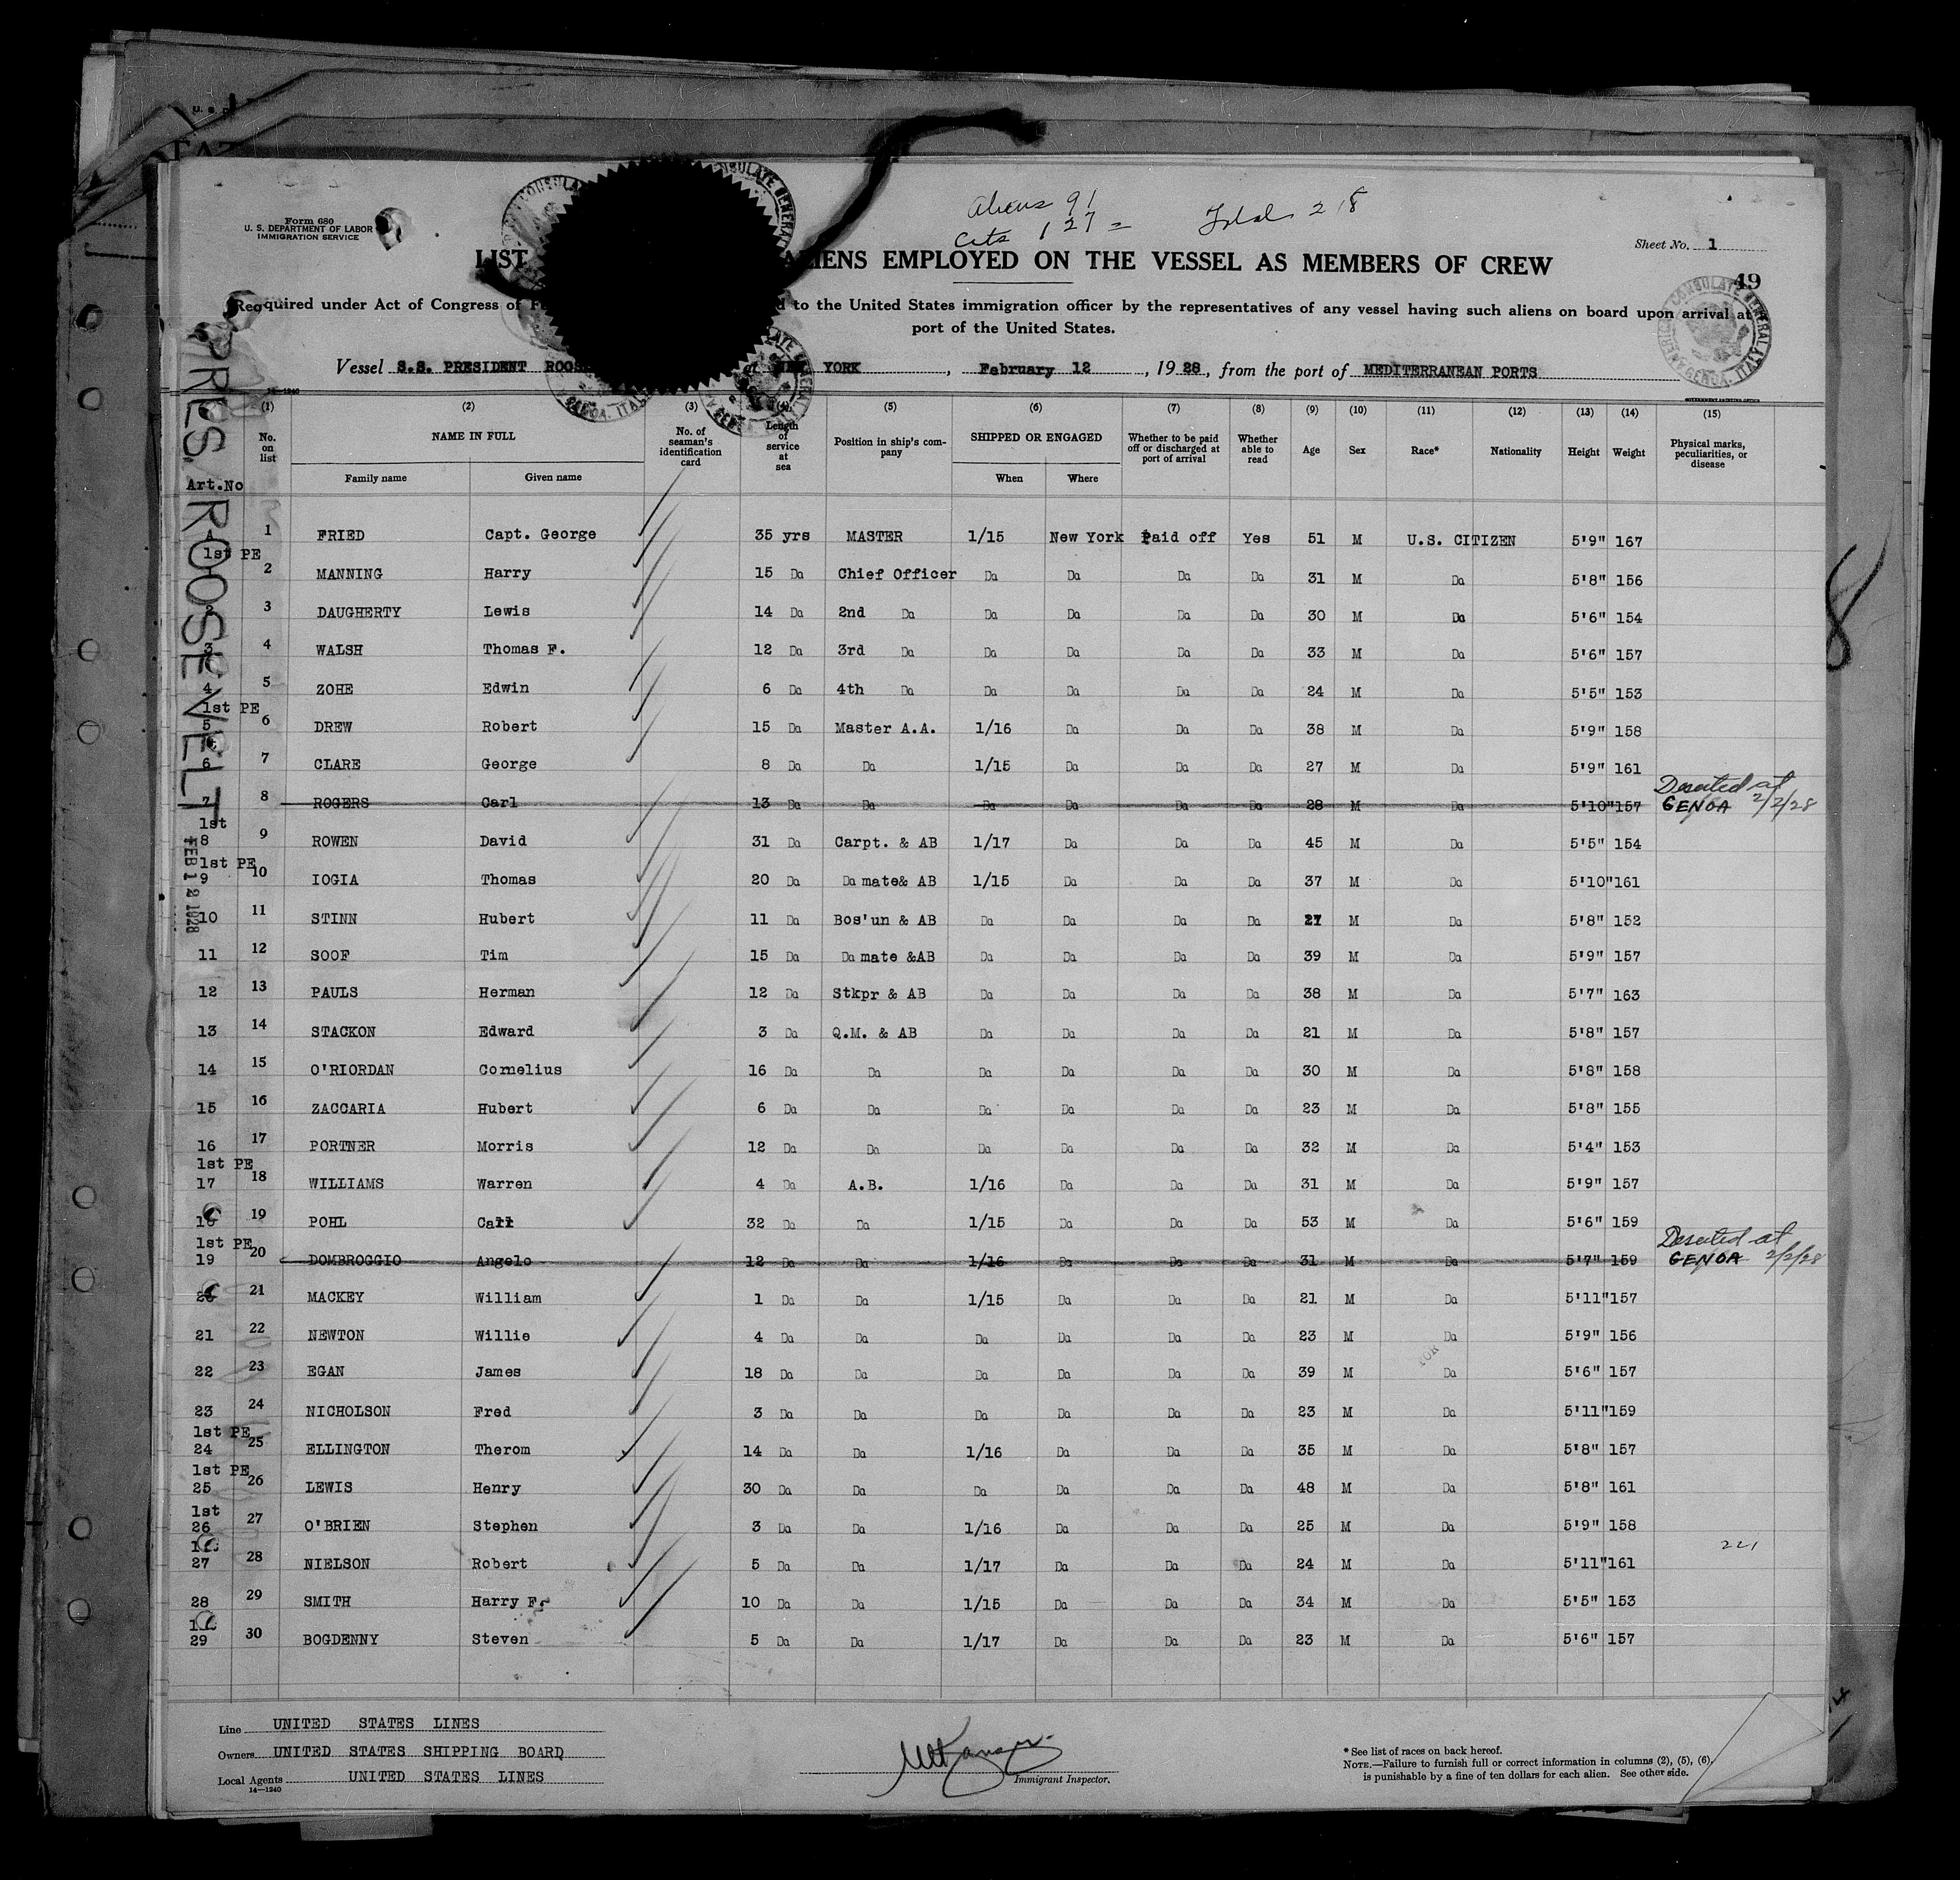 Form 680
U. S. DEPARTMENT OF LABOR
IMMIGRATION SERVICE
Aliens 91
Cits 127 = Total 218
Sheet No. 1
49
LIST ALIENS EMPLOYED ON THE VESSEL AS MEMBERS OF CREW
Required under Act of Congress of to the United States immigration officer by the representatives of any vessel having such aliens on board upon arrival at
port of the United States.
Vessel S.S. PRESIDENT at YORK, February 12, 1928, from the port of MEDITERRANEAN PORTS
PRES. ROOSEVELT
FEB 12 1928
(1) (2) (3) (4) (5) (6) (7) (8) (9) (10) (11) (12) (13) (14) (15)
No. on list NAME IN FULL No. of seaman's identification card Length of service at sea Position in ship's company SHIPPED OR ENGAGED Whether to be paid off or discharged at port of arrival Whether able to read Age Sex Race* Nationality Height Weight Physical marks, peculiarities, or disease
Art.No Family name Given name When Where
1 FRIED Capt. George 35 yrs MASTER 1/15 New York Paid off Yes 51 M U.S. CITIZEN 5'9" 167
1st PE
2 MANNING Harry 15 Do Chief Officer Do Do Do Do 31 M Do 5'8" 156
2 3 DAUGHERTY Lewis 14 Do 2nd Do Do Do Do Do 30 M Do 5'6" 154
3 4 WALSH Thomas F. 12 Do 3rd Do Do Do Do Do 33 M Do 5'6" 157
4 5 ZOHE Edwin 6 Do 4th Do Do Do Do Do 24 M Do 5'5" 153
1st PE
5 6 DREW Robert 15 Do Master A.A. 1/16 Do Do Do 38 M Do 5'9" 158
6 7 CLARE George 8 Do Do 1/15 Do Do Do 27 M Do 5'9" 161
7 8 ROGERS Carl 13 Do Do Do Do Do Do 28 M Do 5'10" 157 Deserted at GENOA 2/2/28
1st
8 9 ROWEN David 31 Do Carpt. & AB 1/17 Do Do Do 45 M Do 5'5" 154
1st PE
9 10 IOGIA Thomas 20 Do Do mate& AB 1/15 Do Do Do 37 M Do 5'10" 161
10 11 STINN Hubert 11 Do Bos'un & AB Do Do Do Do 27 M Do 5'8" 152
11 12 SOOF Tim 15 Do Do mate &AB Do Do Do Do 39 M Do 5'9" 157
12 13 PAULS Herman 12 Do Stkpr & AB Do Do Do Do 38 M Do 5'7" 163
13 14 STACKON Edward 3 Do Q.M. & AB Do Do Do Do 21 M Do 5'8" 157
14 15 O'RIORDAN Cornelius 16 Do Do Do Do Do Do 30 M Do 5'8" 158
15 16 ZACCARIA Hubert 6 Do Do Do Do Do Do 23 M Do 5'8" 155
16 17 PORTNER Morris 12 Do Do Do Do Do Do 32 M Do 5'4" 153
1st PE
17 18 WILLIAMS Warren 4 Do A.B. 1/16 Do Do Do 31 M Do 5'9" 157
18 19 POHL Carl 32 Do Do 1/15 Do Do Do 53 M Do 5'6" 159
1st PE
19 20 DOMBROGGIO Angelo 12 Do Do 1/16 Do Do Do 31 M Do 5'7" 159 Deserted at GENOA 2/2/28
20 21 MACKEY William 1 Do Do 1/15 Do Do Do 21 M Do 5'11" 157
21 22 NEWTON Willie 4 Do Do Do Do Do Do 23 M Do 5'9" 156
22 23 EGAN James 18 Do Do Do Do Do Do 39 M Do 5'6" 157
23 24 NICHOLSON Fred 3 Do Do Do Do Do Do 23 M Do 5'11" 159
1st PE
24 25 ELLINGTON Therom 14 Do Do 1/16 Do Do Do 35 M Do 5'8" 157
1st PE
25 26 LEWIS Henry 30 Do Do Do Do Do Do 48 M Do 5'8" 161
1st
26 27 O'BRIEN Stephen 3 Do Do 1/16 Do Do Do 25 M Do 5'9" 158
27 28 NIELSON Robert 5 Do Do 1/17 Do Do Do 24 M Do 5'11" 161
221
28 29 SMITH Harry F. 10 Do Do 1/15 Do Do Do 34 M Do 5'5" 153
29 30 BOGDENNY Steven 5 Do Do 1/17 Do Do Do 23 M Do 5'6" 157
Line UNITED STATES LINES
Owners UNITED STATES SHIPPING BOARD
Local Agents UNITED STATES LINES
14—1940
Immigrant Inspector.
* See list of races on back hereof.
NOTE.—Failure to furnish full or correct information in columns (2), (5), (6),
is punishable by a fine of ten dollars for each alien. See other side.